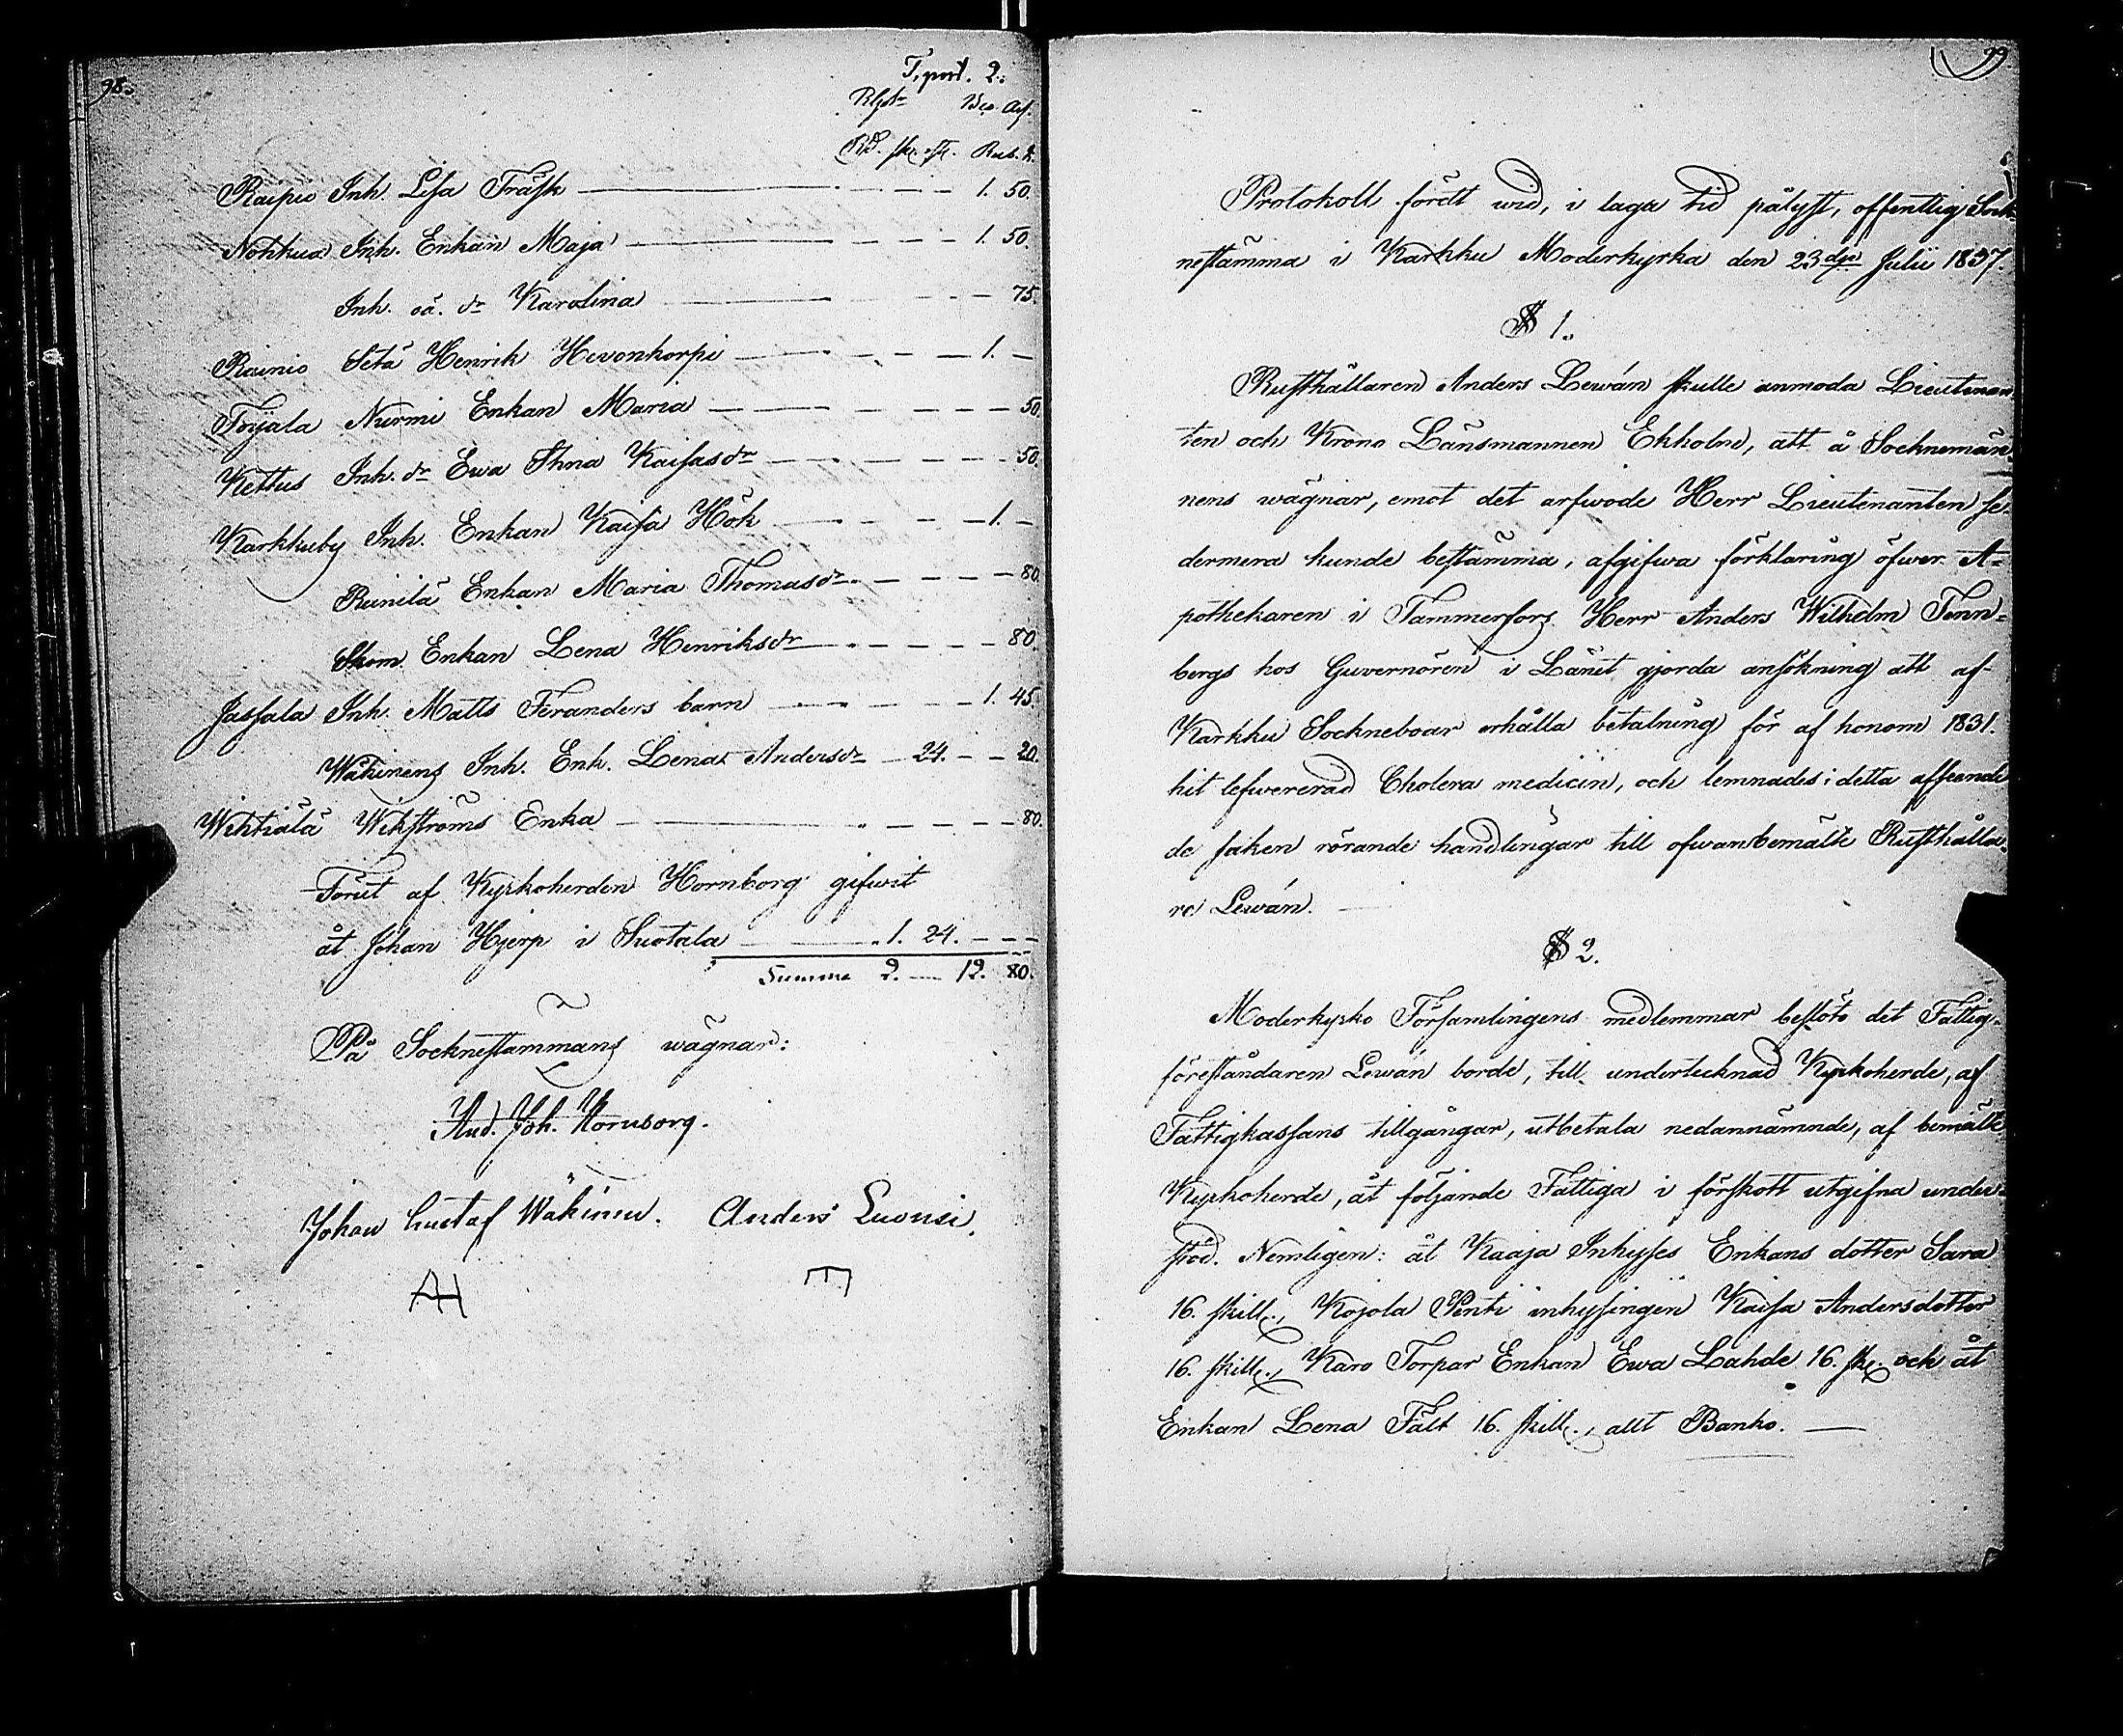 98.
T. port. 2.
Rgsr Bco. Ass.
RD. sk. st. Rub. k.
Raipio Inh. Lisa Träsk — 1. 50.
Nohkua Inh. Enkan Maja — 1. 50.
Inh. oä. dr Karolina — 75.
Rainio Setä Henrik Hevonkorpi — 1. —
Toijala Nurmi Enkan Maria — 50.
Kettus Inh. dr Ewa Stina Kaisasdr — 50.
Karkkuby Inh. Enkan Kaisa Hök — 1. —
Reinilä Enkan Maria Thomasdr — 80.
Skom. Enkan Lena Henriksdr — 80.
Jassala Inh. Matts Feranders barn — 1. 45.
Wähinens Inh. Enk. Lena Andersdr — 24. — 20.
Wihtiälä Wikströms Enka — 80.
Förut af Kyrkoherden Hornborg gifwit
åt Johan Hjerp i Suotala — 1. 24. — —
Summa 2. — 12. 80.
På Sockneståmmans wägnar:
And. Joh. Hornborg.
Johan Gustaf Wähinen. Anders Luonsi.
AH E
99.
Protokoll fördt wid, i laga tid pålyst, offentlig Sock-
nestämma i Karkku Moderkyrka den 23dje Julii 1837.
§ 1.
Rusthållaren Anders Lewán skulle anmoda Lieutenan-
ten och Krono Länsmannen Ekholm, att å Socknemän-
nens wägnar, emot det arfwode Herr Lieutenanten se-
dermera kunde bestämma, afgifwa förklaring öfwer A-
pothekaren i Tammerfors Herr Anders Wilhelm Tenn-
bergs hos Guvernören i Länet gjorda ansökning att af
Karkku Sockneboar erhålla betalning för af honom 1831.
hit lefwererad Cholera medicin, och lemnades i detta afseende
de saken rörande handlingar till ofwanbemälte Rusthålla-
re Lewán. —
§ 2.
Moderkyrko Församlingens medlemmar beslöto det Fattig-
föreståndaren Lewán borde, till undertecknad Kyrkoherde, af
Fattigkassans tillgångar, utbetala nedannämnde, af bemälte
Kyrkoherde, åt följande Fattiga i förskott utgifna under-
stöd. Nemligen: åt Kaaja Inhyses Enkans dotter Sara
16. skill., Kojola Penti inhysingen Kaisa Andersdotter
16. skill., Karo Torpar Enkan Ewa Lahde 16. sk. och åt
Enkan Lena Fält 16. skill., allt Banko. —